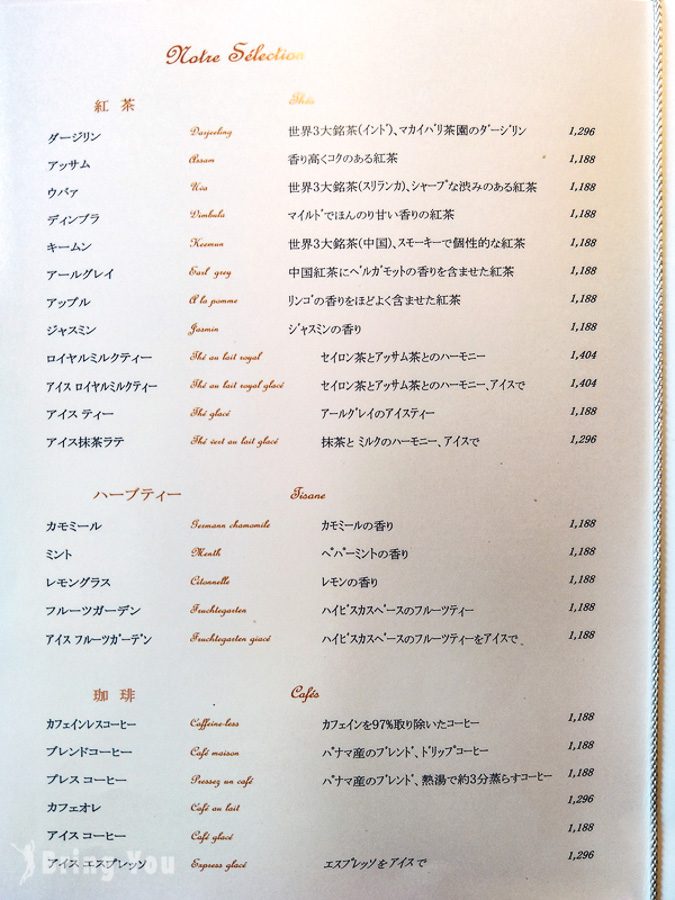 Notre Sélection
紅茶 Thés
ダージリン Darjeeling 世界3大銘茶(インド)、マカイバリ茶園のダージリン 1,296
アッサム Assam 香り高くコクのある紅茶 1,188
ウバァ Uva 世界3大銘茶(スリランカ)、シャープな渋みのある紅茶 1,188
ディンブラ Dimbula マイルドでほんのり甘い香りの紅茶 1,188
キームン Keemun 世界3大銘茶(中国)、スモーキーで個性的な紅茶 1,188
アールグレイ Earl grey 中国紅茶にベルガモットの香りを含ませた紅茶 1,188
アップル A la pomme リンゴの香りをほどよく含ませた紅茶 1,188
ジャスミン Jasmin ジャスミンの香り 1,188
ロイヤルミルクティー Thé au lait royal セイロン茶とアッサム茶とのハーモニー 1,404
アイス ロイヤルミルクティー Thé au lait royal glacé セイロン茶とアッサム茶とのハーモニー、アイスで 1,404
アイス ティー Thé glacé アールグレイのアイスティー 1,188
アイス抹茶ラテ Thé vert au lait glacé 抹茶と ミルクのハーモニー、アイスで 1,296
ハーブティー Tisane
カモミール Germann chamomile カモミールの香り 1,188
ミント Menth ペパーミントの香り 1,188
レモングラス Citonnelle レモンの香り 1,188
フルーツガーデン Fruchtegarten ハイビスカスベースのフルーツティー 1,188
アイス フルーツガーデン Fruchtegarten giacé ハイビスカスベースのフルーツティーをアイスで 1,188
珈琲 Cafés
カフェインレスコーヒー Caffeine-less カフェインを97%取り除いたコーヒー 1,188
ブレンドコーヒー Café maison パナマ産のブレンド、ドリップコーヒー 1,188
プレス コーヒー Pressez un café パナマ産のブレンド、熱湯で約3分蒸らすコーヒー 1,188
カフェオレ Café au lait 1,296
アイス コーヒー Café glacé 1,188
アイス エスプレッソ Express glacé エスプレッソをアイスで 1,296
Bring You